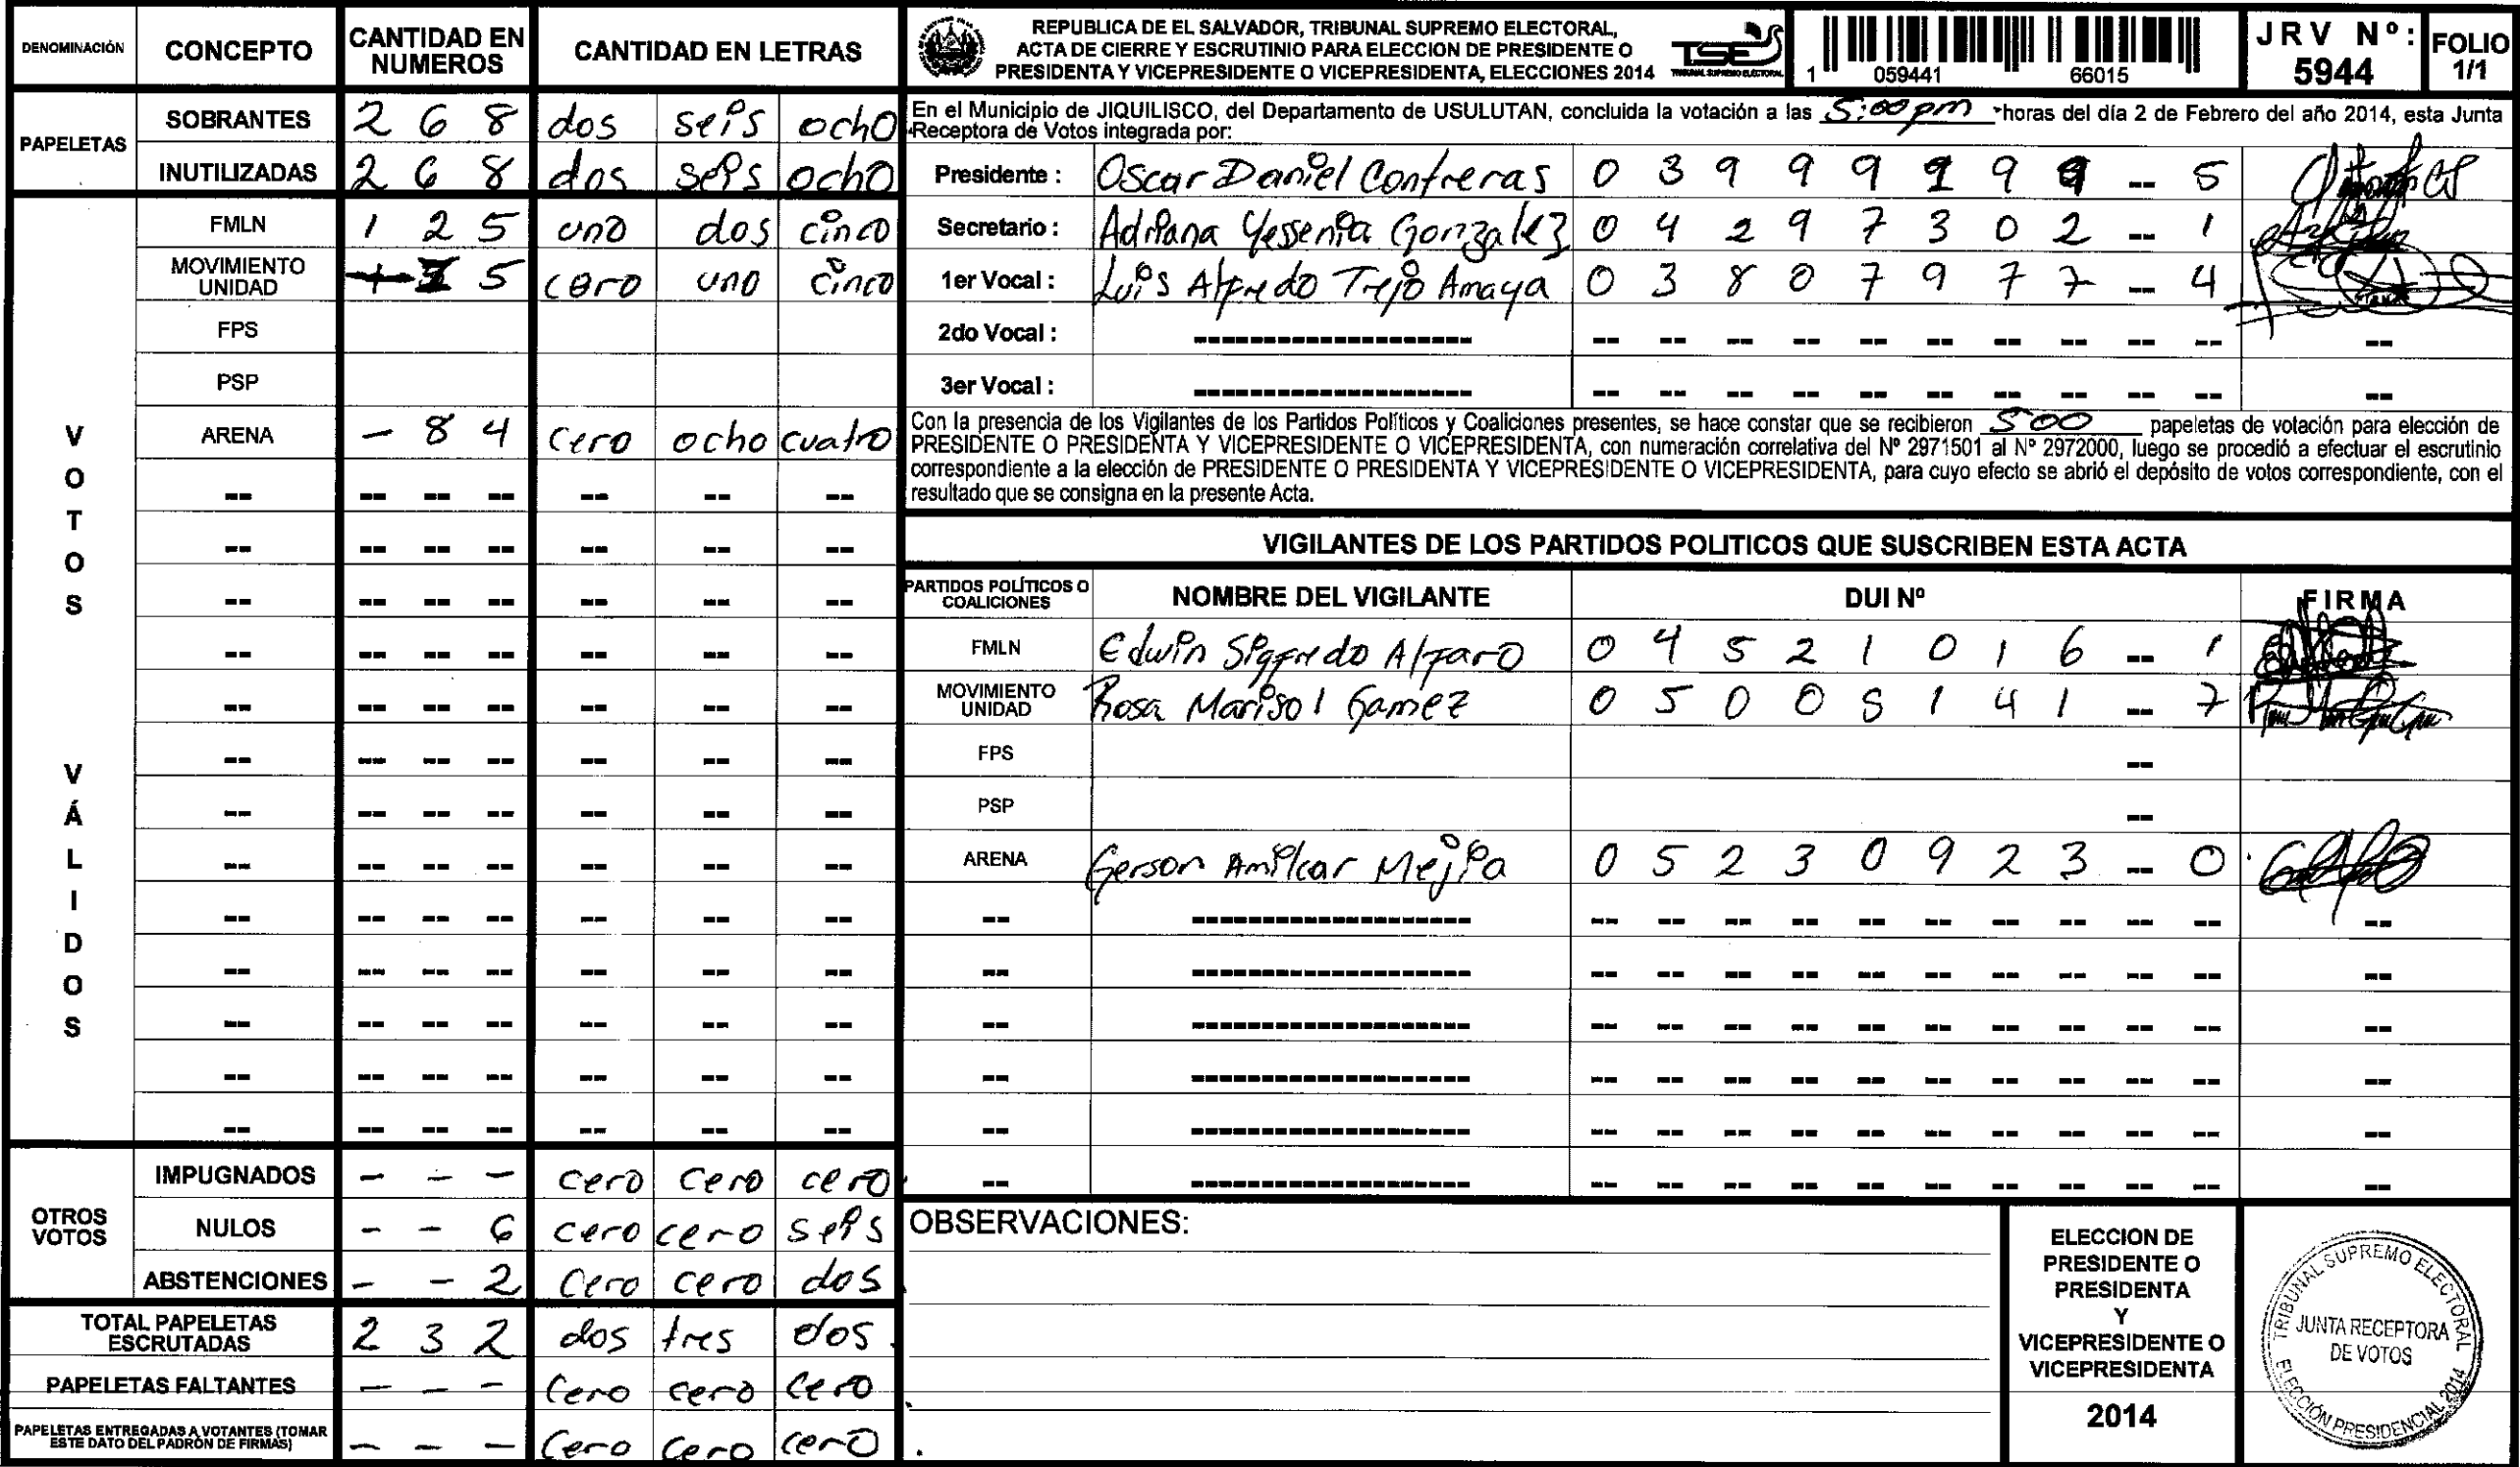 DENOMINACIÓN CONCEPTO CANTIDAD EN NUMEROS CANTIDAD EN LETRAS
PAPELETAS
SOBRANTES 2 6 8 dos seis ocho
INUTILIZADAS 2 6 8 dos seis ocho
VOTOS VÁLIDOS
FMLN 1 2 5 uno dos cinco
MOVIMIENTO UNIDAD 5 cero uno cinco
FPS
PSP
ARENA - 8 4 cero ocho cuatro
-- -- -- -- -- -- --
-- -- -- -- -- -- --
-- -- -- -- -- -- --
-- -- -- -- -- -- --
-- -- -- -- -- -- --
-- -- -- -- -- -- --
-- -- -- -- -- -- --
-- -- -- -- -- -- --
-- -- -- -- -- -- --
-- -- -- -- -- -- --
-- -- -- -- -- -- --
-- -- -- -- -- -- --
-- -- -- -- -- -- --
OTROS VOTOS
IMPUGNADOS - - - cero cero cero
NULOS - - 6 cero cero seis
ABSTENCIONES - - 2 cero cero dos
TOTAL PAPELETAS ESCRUTADAS 2 3 2 dos tres dos
PAPELETAS FALTANTES - - - cero cero cero
PAPELETAS ENTREGADAS A VOTANTES (TOMAR ESTE DATO DEL PADRÓN DE FIRMAS) - - - cero cero cero
REPUBLICA DE EL SALVADOR, TRIBUNAL SUPREMO ELECTORAL,
ACTA DE CIERRE Y ESCRUTINIO PARA ELECCION DE PRESIDENTE O
PRESIDENTA Y VICEPRESIDENTE O VICEPRESIDENTA, ELECCIONES 2014
TSE
TRIBUNAL SUPREMO ELECTORAL
1 059441 66015
JRV Nº: 5944
FOLIO 1/1
En el Municipio de JIQUILISCO, del Departamento de USULUTAN, concluida la votación a las 5:00 pm horas del día 2 de Febrero del año 2014, esta Junta
Receptora de Votos integrada por:
Presidente : Oscar Daniel Contreras 0 3 9 9 9 9 9 9 -- 5
Secretario : Adriana Yessenia Gonzalez 0 4 2 9 7 3 0 2 -- 1
1er Vocal : Luis Alfredo Trejo Amaya 0 3 8 0 7 9 7 7 -- 4
2do Vocal : ------------------- -- -- -- -- -- -- -- -- -- -- --
3er Vocal : ------------------- -- -- -- -- -- -- -- -- -- -- --
Con la presencia de los Vigilantes de los Partidos Políticos y Coaliciones presentes, se hace constar que se recibieron 500 papeletas de votación para elección de
PRESIDENTE O PRESIDENTA Y VICEPRESIDENTE O VICEPRESIDENTA, con numeración correlativa del Nº 2971501 al Nº 2972000, luego se procedió a efectuar el escrutinio
correspondiente a la elección de PRESIDENTE O PRESIDENTA Y VICEPRESIDENTE O VICEPRESIDENTA, para cuyo efecto se abrió el depósito de votos correspondiente, con el
resultado que se consigna en la presente Acta.
VIGILANTES DE LOS PARTIDOS POLITICOS QUE SUSCRIBEN ESTA ACTA
PARTIDOS POLÍTICOS O COALICIONES NOMBRE DEL VIGILANTE DUI Nº FIRMA
FMLN Edwin Sigfredo Alfaro 0 4 5 2 1 0 1 6 -- 1
MOVIMIENTO UNIDAD Rosa Marisol Gamez 0 5 0 0 8 1 4 1 -- 7
FPS --
PSP --
ARENA Gerson Amilcar Mejia 0 5 2 3 0 9 2 3 -- 0
-- ------------------- -- -- -- -- -- -- -- -- -- -- --
-- ------------------- -- -- -- -- -- -- -- -- -- -- --
-- ------------------- -- -- -- -- -- -- -- -- -- -- --
-- ------------------- -- -- -- -- -- -- -- -- -- -- --
-- ------------------- -- -- -- -- -- -- -- -- -- -- --
-- ------------------- -- -- -- -- -- -- -- -- -- -- --
OBSERVACIONES:
ELECCION DE
PRESIDENTE O
PRESIDENTA
Y
VICEPRESIDENTE O
VICEPRESIDENTA
2014
TRIBUNAL SUPREMO ELECTORAL
JUNTA RECEPTORA
DE VOTOS
ELECCIÓN PRESIDENCIAL 2014